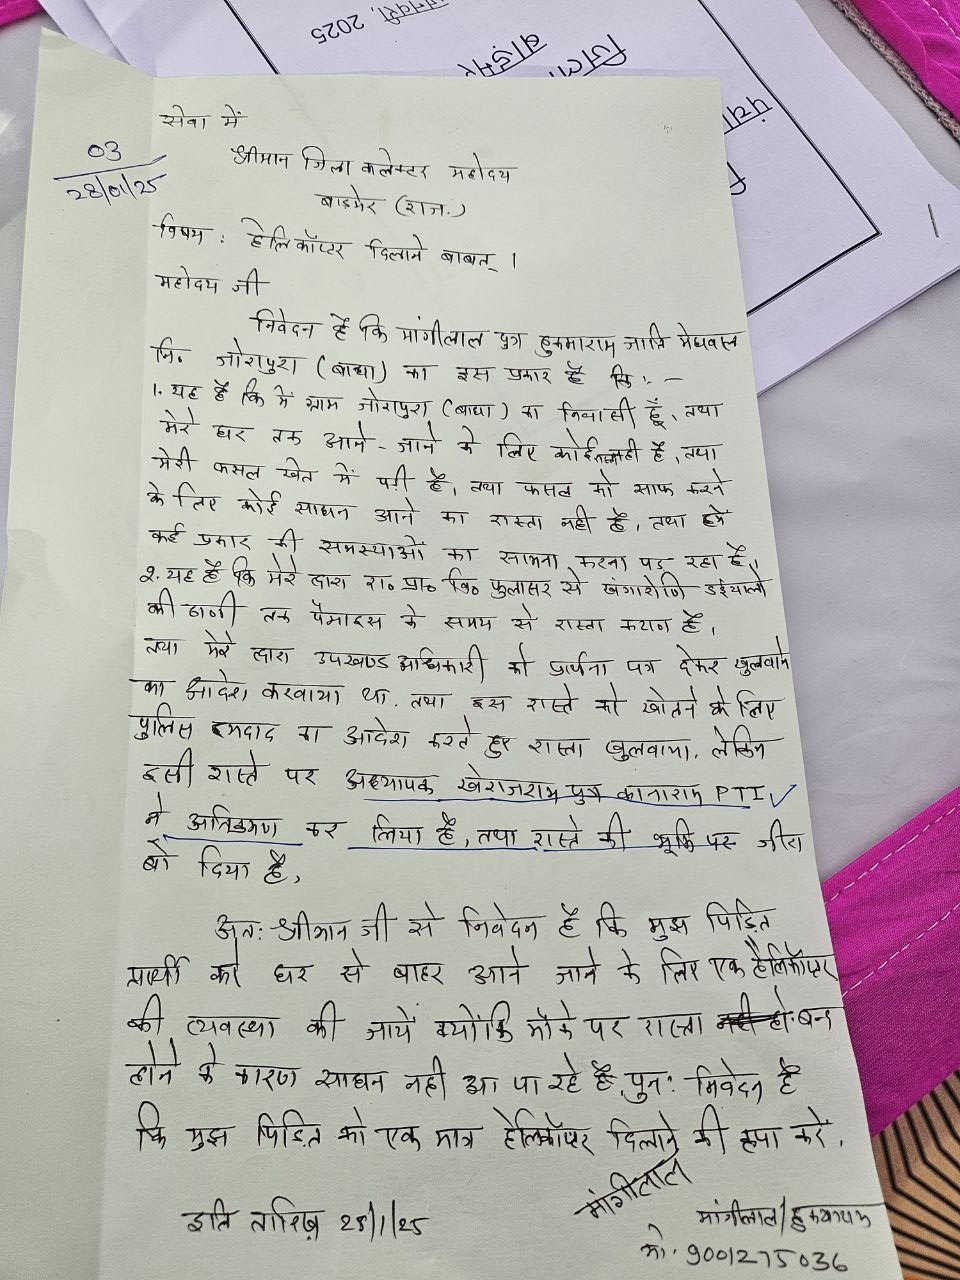 जनवरी, 2025
जिला
बाड़मेर
पंचा
03
28/01/25
सेवा में
श्रीमान जिला कलेक्टर महोदय
बाडमेर (राज.)
विषय : हेलिकॉप्टर दिलाने बाबत् ।
महोदय जी
निवेदन है कि मांगीलाल पुत्र हुकमाराम जाति मेघवाल
नि. जोरापुरा (बाधा) का इस प्रकार है कि :-
1. यह है कि में ग्राम जोरापुरा (बाधा) का निवासी हूँ, तथा
मेरे घर तक आने-जाने के लिए कोई नही है, तथा
मेरी फसल खेत में पड़ी है, तथा फसल को साफ करने
के लिए कोई साधन आने का रास्ता नही है, तथा हमे
कई प्रकार की समस्याओं का सामना करना पड़ रहा है,
2. यह है कि मेरे द्वारा रा० प्रा० वि० फुलासर से डईयालो
की ढाणी तक पैमाइस के समय से रास्ता कटाण है,
तथा मेरे द्वारा उपखण्ड अधिकारी को प्रार्थना पत्र देकर खुलवाने
का आदेश करवाया था. तथा इस रास्ते को खोलने के लिए
पुलिस इमदाद का आदेश करते हुए रास्ता खुलवाया, लेकिन
इसी रास्ते पर अध्यापक खेराजराम पुत्र कानाराम PTI
ने अतिक्रमण कर लिया है, तथा रास्ते की भूमि पर जीरा
बो दिया है,
अतः श्रीमान जी से निवेदन है कि मुझ पिड़ित
प्रार्थी को घर से बाहर आने जाने के लिए एक हैलिकॉप्टर
की व्यवस्था की जाये क्योंकि मौके पर रास्ता बन्द
होने के कारण साधन नही आ पा रहे है, पुनः निवेदन है
कि मुझ पिड़ित को एक मात्र हेलिकॉप्टर दिलाने की कृपा करे,
मांगीलाल
इति तारिख़ 28/1/25
मांगीलाल/हुकमाराम
मो. 9001275036